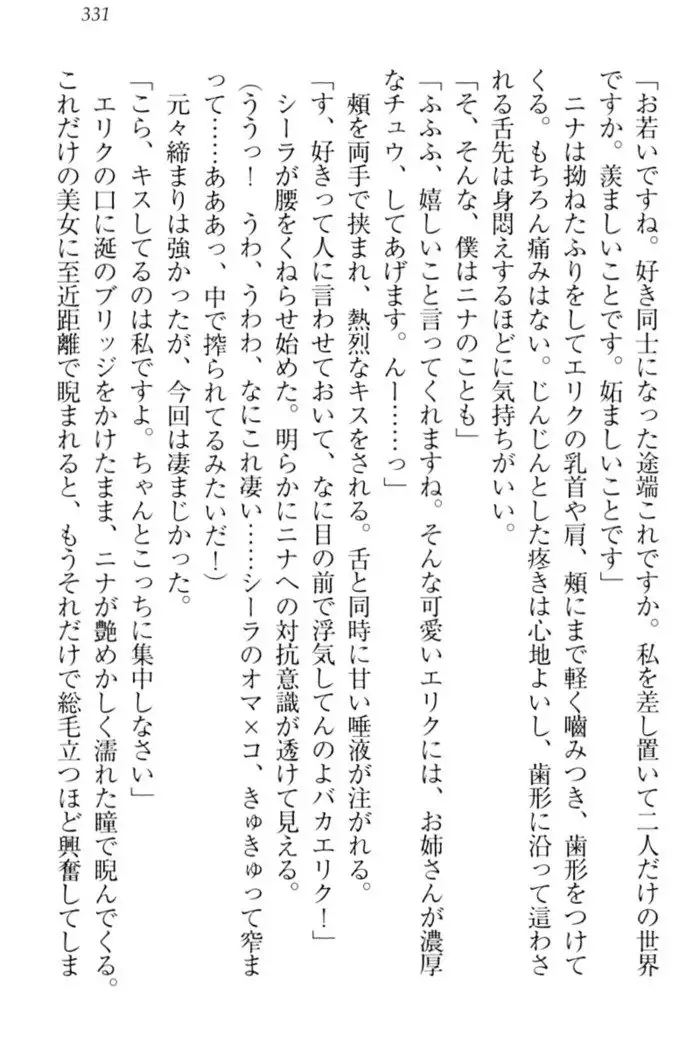 331
「お若いですね。好き同士になった途端これですか。私を差し置いて二人だけの世界
ですか。羨ましいことです。妬ましいことです」
ニナは拗ねたふりをしてエリクの乳首や肩、頬にまで軽く嚙みつき、歯形をつけて
くる。もちろん痛みはない。じんじんとした疼きは心地よいし、歯形に沿って這わさ
れる舌先は身悶えするほどに気持ちがいい。
「そ、そんな、僕はニナのことも」
「ふふふ、嬉しいこと言ってくれますね。そんな可愛いエリクには、お姉さんが濃厚
なチュウ、してあげます。んー……っ」
頬を両手で挟まれ、熱烈なキスをされる。舌と同時に甘い唾液が注がれる。
「す、好きって人に言わせておいて、なに目の前で浮気してんのよバカエリク！」
シーラが腰をくねらせ始めた。明らかにニナへの対抗意識が透けて見える。
(ううっ！　うわ、うわわ、なにこれ凄い……シーラのオマ×コ、きゅきゅって窄ま
って……あああっ、中で搾られてるみたいだ！)
元々締まりは強かったが、今回は凄まじかった。
「こら、キスしてるのは私ですよ。ちゃんとこっちに集中しなさい」
エリクの口に涎のブリッジをかけたまま、ニナが艶めかしく濡れた瞳で睨んでくる。
これだけの美女に至近距離で睨まれると、もうそれだけで総毛立つほど興奮してしま